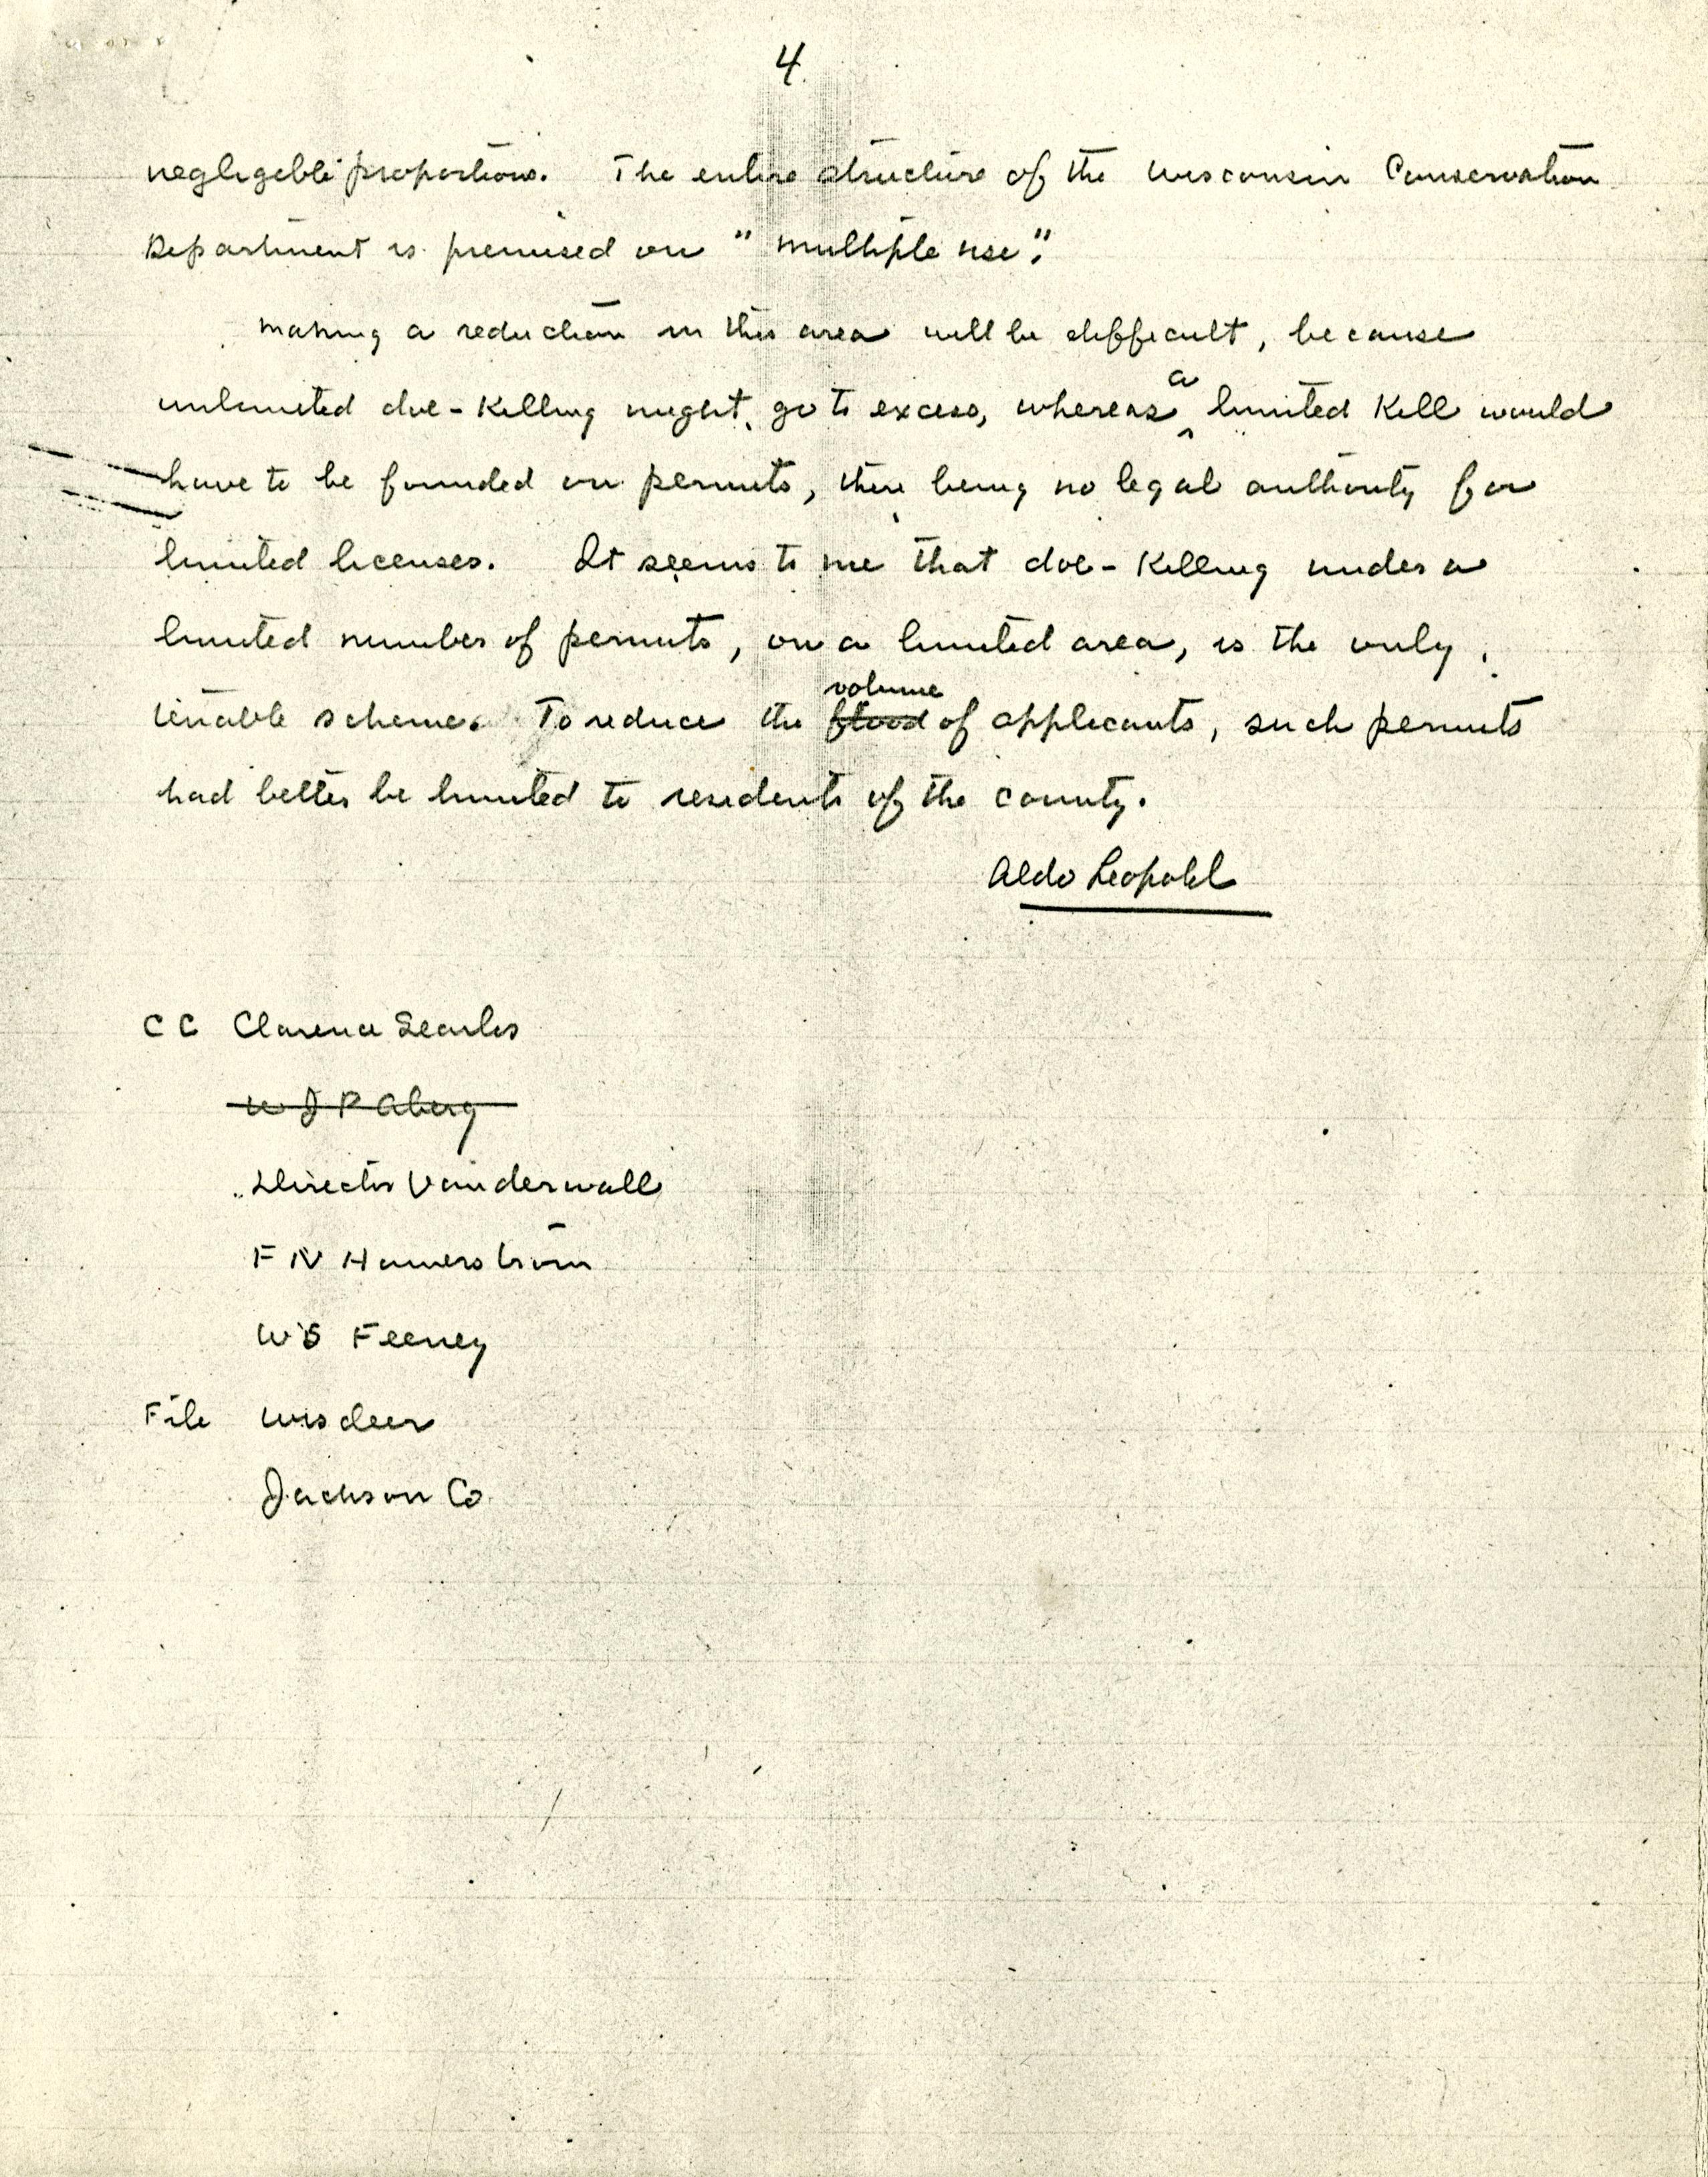 4
negligeble proportions. The entire structure of the Wisconsin Conservation
Department is premised on "multiple use".
Making a reduction in this area will be difficult, because
unlimited doe-killing might go to excess, whereas a limited kill would
have to be founded on permits, there being no legal authority for
limited licenses. It seems to me that doe-killing under a
limited number of permits, on a limited area, is the only
tenable scheme. To reduce the flood volume of applicants, such permits
had better be limited to residents of the county.
Aldo Leopold
CC Clarence Searles
W J P Aberg
Director Vanderwall
F N Hamerstrom
W S Feeney
File Wis deer
Jackson Co